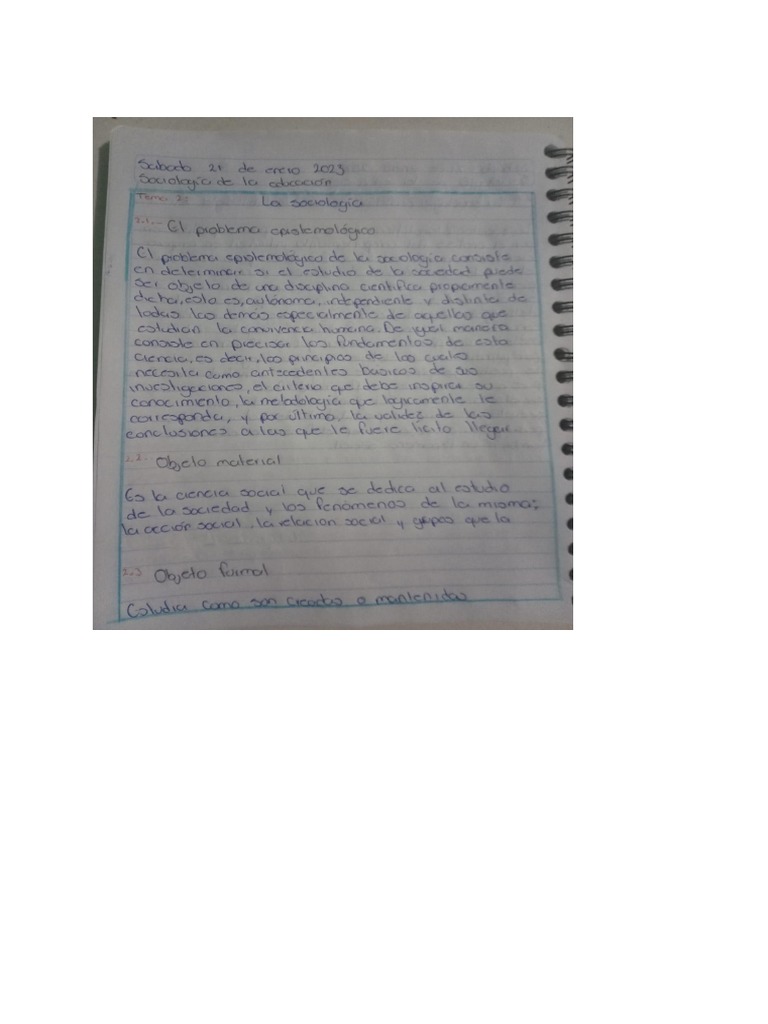 Sabado 21 de enero 2023
Sociología de la educación
Tema 2: La sociología
2.1.- El problema epistemológico
El problema epistemológico de la sociología consiste
en determinar si el estudio de la sociedad puede
ser objeto de una disciplina científica propiamente
dicha, esto es, autónoma, independiente y distinta de
todas las demás especialmente de aquellas que
estudian la convivencia humana. De igual manera
consiste en precisar los fundamentos de esta
ciencia, es decir, los principios de los cuales
necesita como antecedentes basicos de sus
investigaciones, el criterio que debe inspirar su
conocimiento, la metodología que logicamente le
corresponda, y por último, la validez de las
conclusiones a las que le fuere licito llegar
2.2.- Objeto material
Es la ciencia social que se dedica al estudio
de la sociedad y los fenómenos de la misma;
la acción social, la relación social y grupos que la
2.3 Objeto formal
Estudia como son creadas o mantenidas